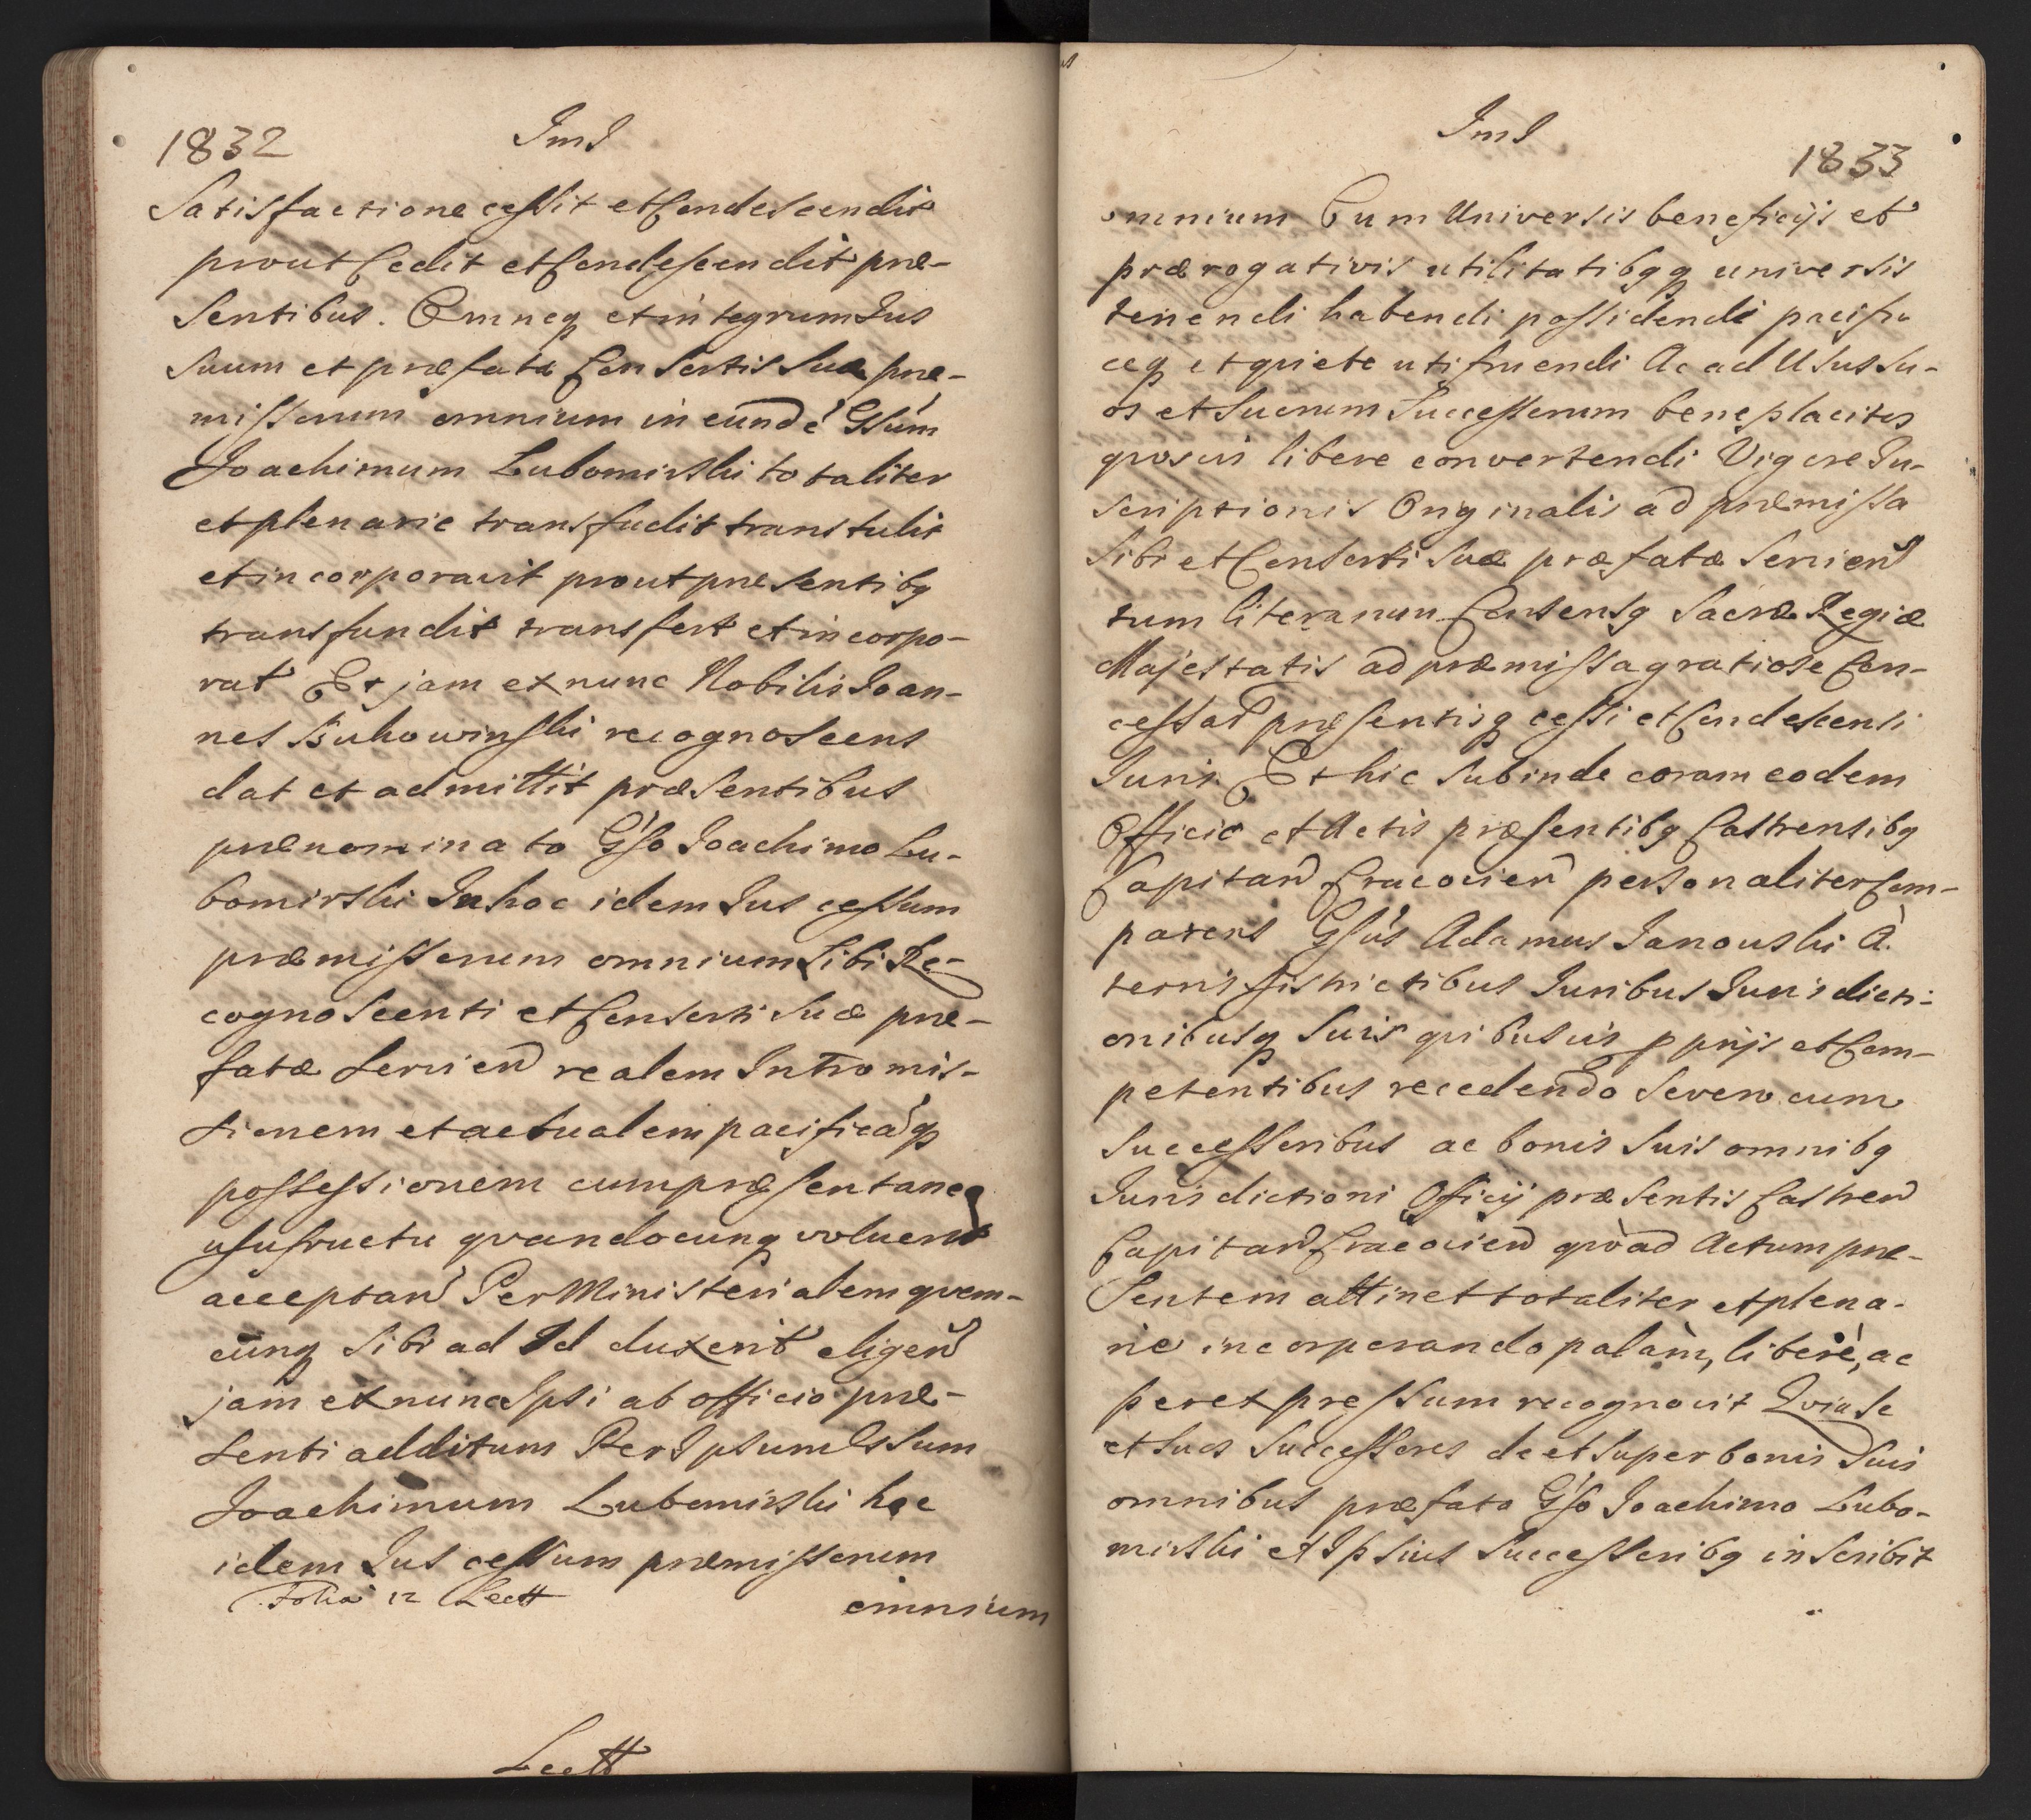 1832
ImI
Satisfactione cessit et Condescendit
prout Cedit et Condescendit præ-
sentibus. Omneq et integrum Ius
Suum et præfatæ Consortis Suæ præ-
missorum omnium in eundē Gsum
Joachimum Lubomirski totaliter
et plenarie transfudit transtulit
et incorporavit prout præsentibq
transfundit transfert et incorpo-
rat Et jam ex nunc Nobilis Joan-
nes Bukowinski recognoscens
dat et admittit præsentibus
prænominato Gso Joachimo Lu-
bomirski In hoc idem Ius cessum
præmissorum omnium Sibi Re-
cognoscenti et Consorti Suæ præ-
fatæ servien realem Intromis-
sionem et actualem pacificāq
possessionem cum præsentaneo
usufructu quandocunq voluerit
acceptan Per Ministerialem quem-
cunq Sibi ad Id duxerit eligen
jam ex nunc Ipsi ab officio præ-
senti additum Per Ipsum Gssum
Joachimum Lubomirski hoc
idem Ius cessum præmissorum
Folia 12 Lectt
omnium
Lectt
ImI
1833
omnium Cum Universis beneficijs et
prærogativis utilitatibqq universis
tenendi habendi possidendi pacifi
ceq et quiete utifruendi Ac ad Usus su-
os et Suorum Successorum beneplacitos
quosvis libere convertendi Vigore In-
scriptionis Originalis ad præmissa
Sibi et Consorti Suæ præfatæ servien
tum literarum Consensq Sacræ Regiæ
Majestatis ad præmissa gratiose Con-
cessar præsentisq cessi et Condescensi
Iuris. Et hic Subinde coram eodem
Officio et Actis præsentibq Castrensibq
Capitan Cracovien personaliter Com-
parens Gsus Adamus Janouski A.
terris districtibus Iuribus Iurisdicti-
onibusq Suis quibusvis pprijs et Com-
petentibus recedendo Se vero cum
Successoribus ac bonis Suis omnibq
Iurisdictioni Officij præsentis Castren
Capitan Cracovien quoad Actum præ-
sentem attinet totaliter et plena-
rie incorporando palàm, liberè, ac
per expressum recognovit Quia Se
et Suos Successores de et Super bonis Suis
omnibus præfato Gso Joachimo Lubo-
mirski et Ipsius Successoribq inscribit